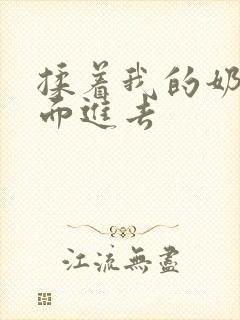 揉着我的奶
而進去
江流無盡